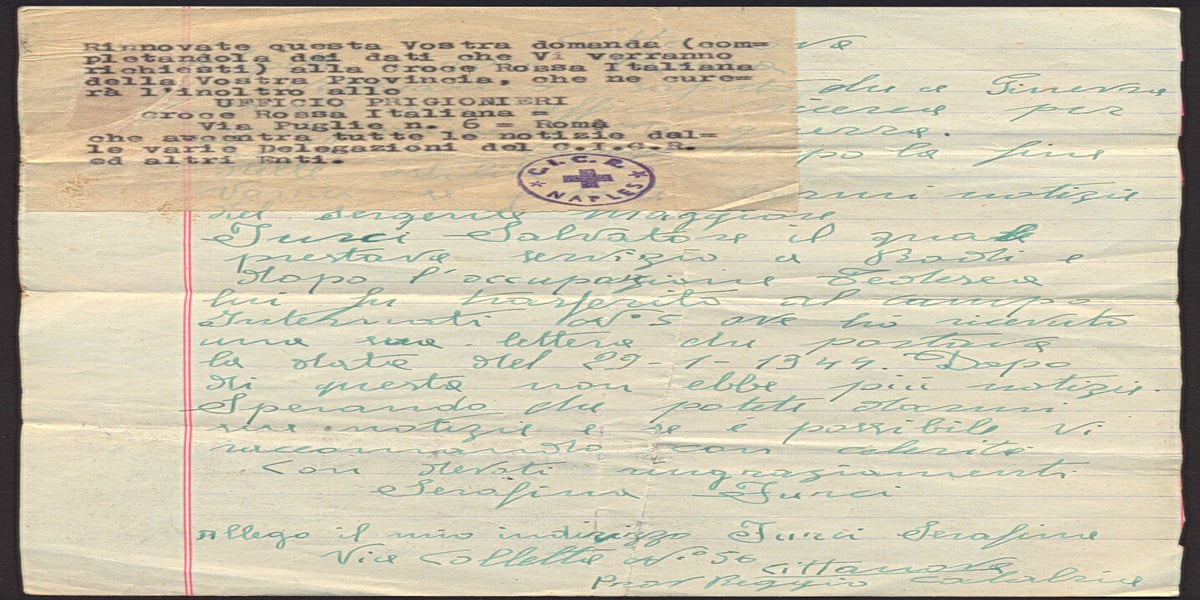 Rinnovate questa Vostra domanda (com=
pletandola dei dati che Vi verranno
richiesti) alla Croce Rossa Italiana
della Vostra Provincia, che ne cure=
rà l'inoltro allo
UFFICIO PRIGIONIERI
Croce Rossa Italiana =
Via Puglie n. 6 = Roma
che accentra tutte le notizie dal=
le varie Delegazioni del C.I.C.R.
ed altri Enti.
C.I.C.R.
NAPLES
che a Ginevra
per
la fine
notizie
del sergente maggiore
Turci Salvatore il quale
prestava servizio a Rodi e
dopo l'occupazione Tedesca
lui fu trasferito al campo
Internati N° 5 ove ho ricevuto
una sua lettera che portava
la data del 29-1-1944. Dopo
di questa non ebbe più notizie.
Sperando che potete darmi
sue notizie e se è possibile Vi
raccomando con celerità
Con devoti ringraziamenti
Serafina Turci
Allego il mio indirizzo Turci Serafina
Via Colletta N.° 50
Cittanova
Prov Reggio Calabria